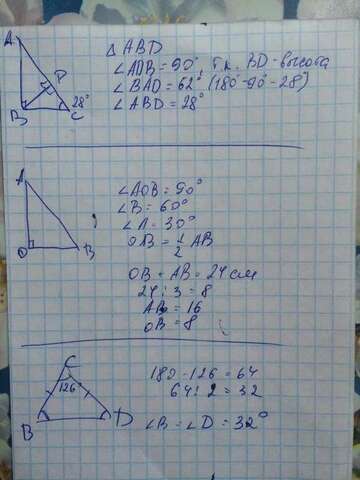 A
D
B
C
28°
△ ABD
∠ADB = 90°, т.к. BD - высота
∠BAD = 62° (180° - 90° - 28°)
∠ABD = 28°
A
O
B
∠AOB = 90°
∠B = 60°
∠A = 30°
OB = 1/2 AB
OB + AB = 24 см
24 : 3 = 8
AB = 16
OB = 8
C
126°
B
D
180 - 126 = 64
64 : 2 = 32
∠B = ∠D = 32°